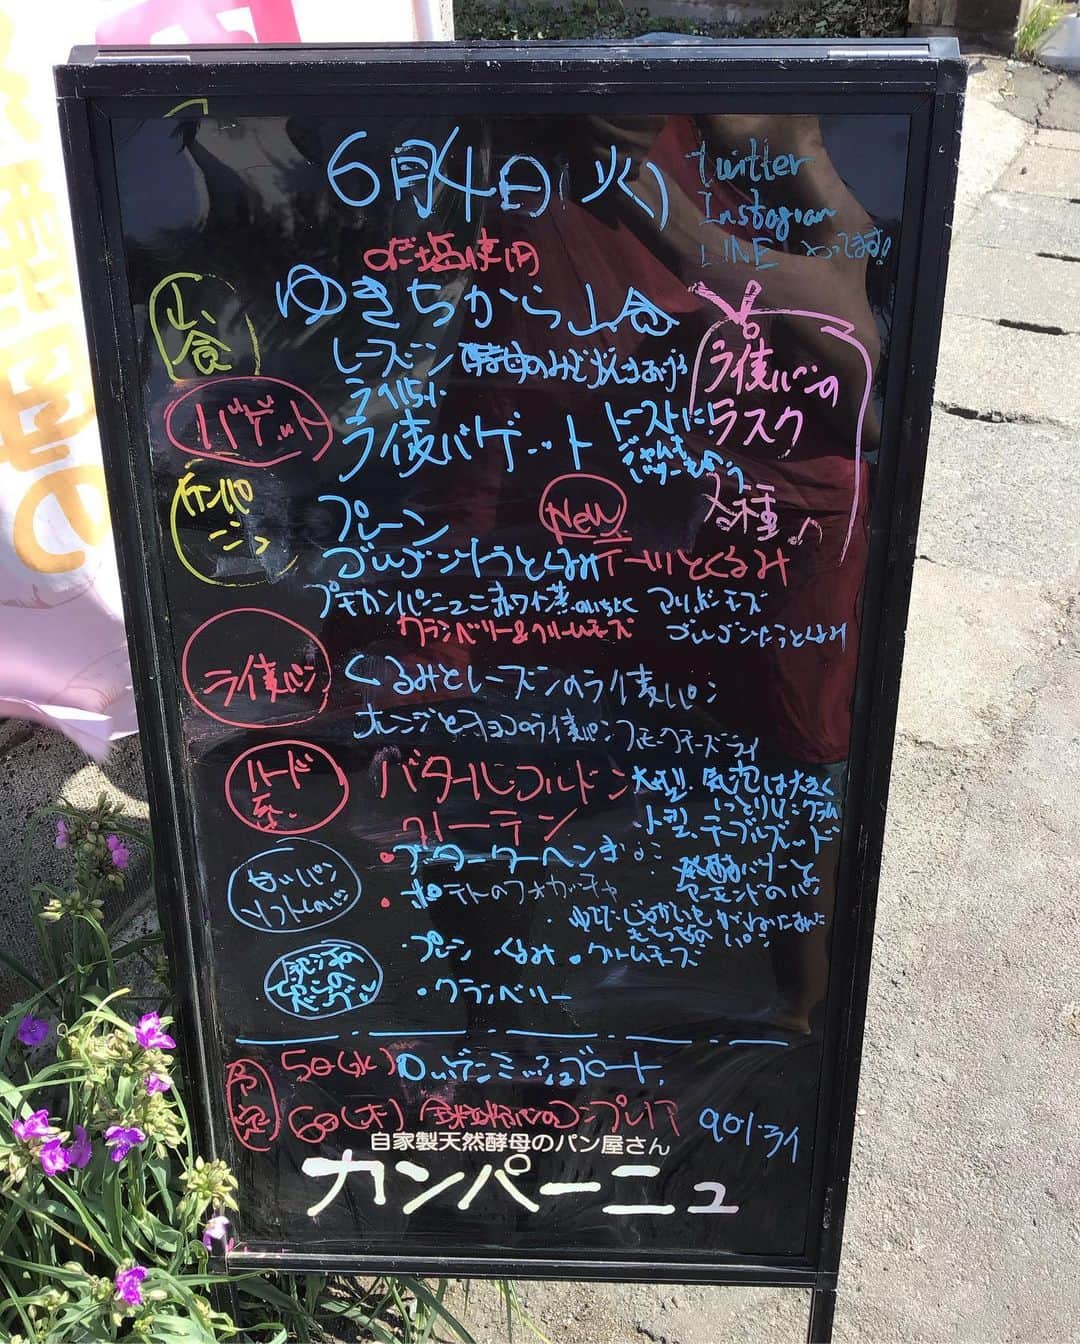 6月4日(火)
twitter
Instagram
LINE やってます!
のだ塩使用
山食
ゆきちから山食
レーズン
ライ麦パンの
ラスク
各種♪
バゲット
ライ麦バゲット
トーストに!
ジャムも
カンパーニュ
プレーン
New
ゴルゴンゾーラとくるみ
とくるみ
プチカンパーニュ
赤ワイン漬けいちじく
マリボーチーズ
クランベリー&クリームチーズ
ゴルゴンゾーラとくるみ
ライ麦パン
くるみとレーズンのライ麦パン
オレンジとチョコのライ麦パン
スモークチーズライ
ハード系
バタール・コルドン
大型. 気泡は大きく
クーテン
小型. テーブルブレッド
甘いパン
ソフトなパン
・ブタークーヘン
発酵バターと
アーモンドのパン
・ポテトのフォカッチャ
・プレーン ・くるみ ・クリームチーズ
・クランベリー
予定
5日(水) ロッゲンミッシュブロート
6日(木) 全粒粉パン コンプレ
90%ライ
自家製天然酵母のパン屋さん
カンパーニュ